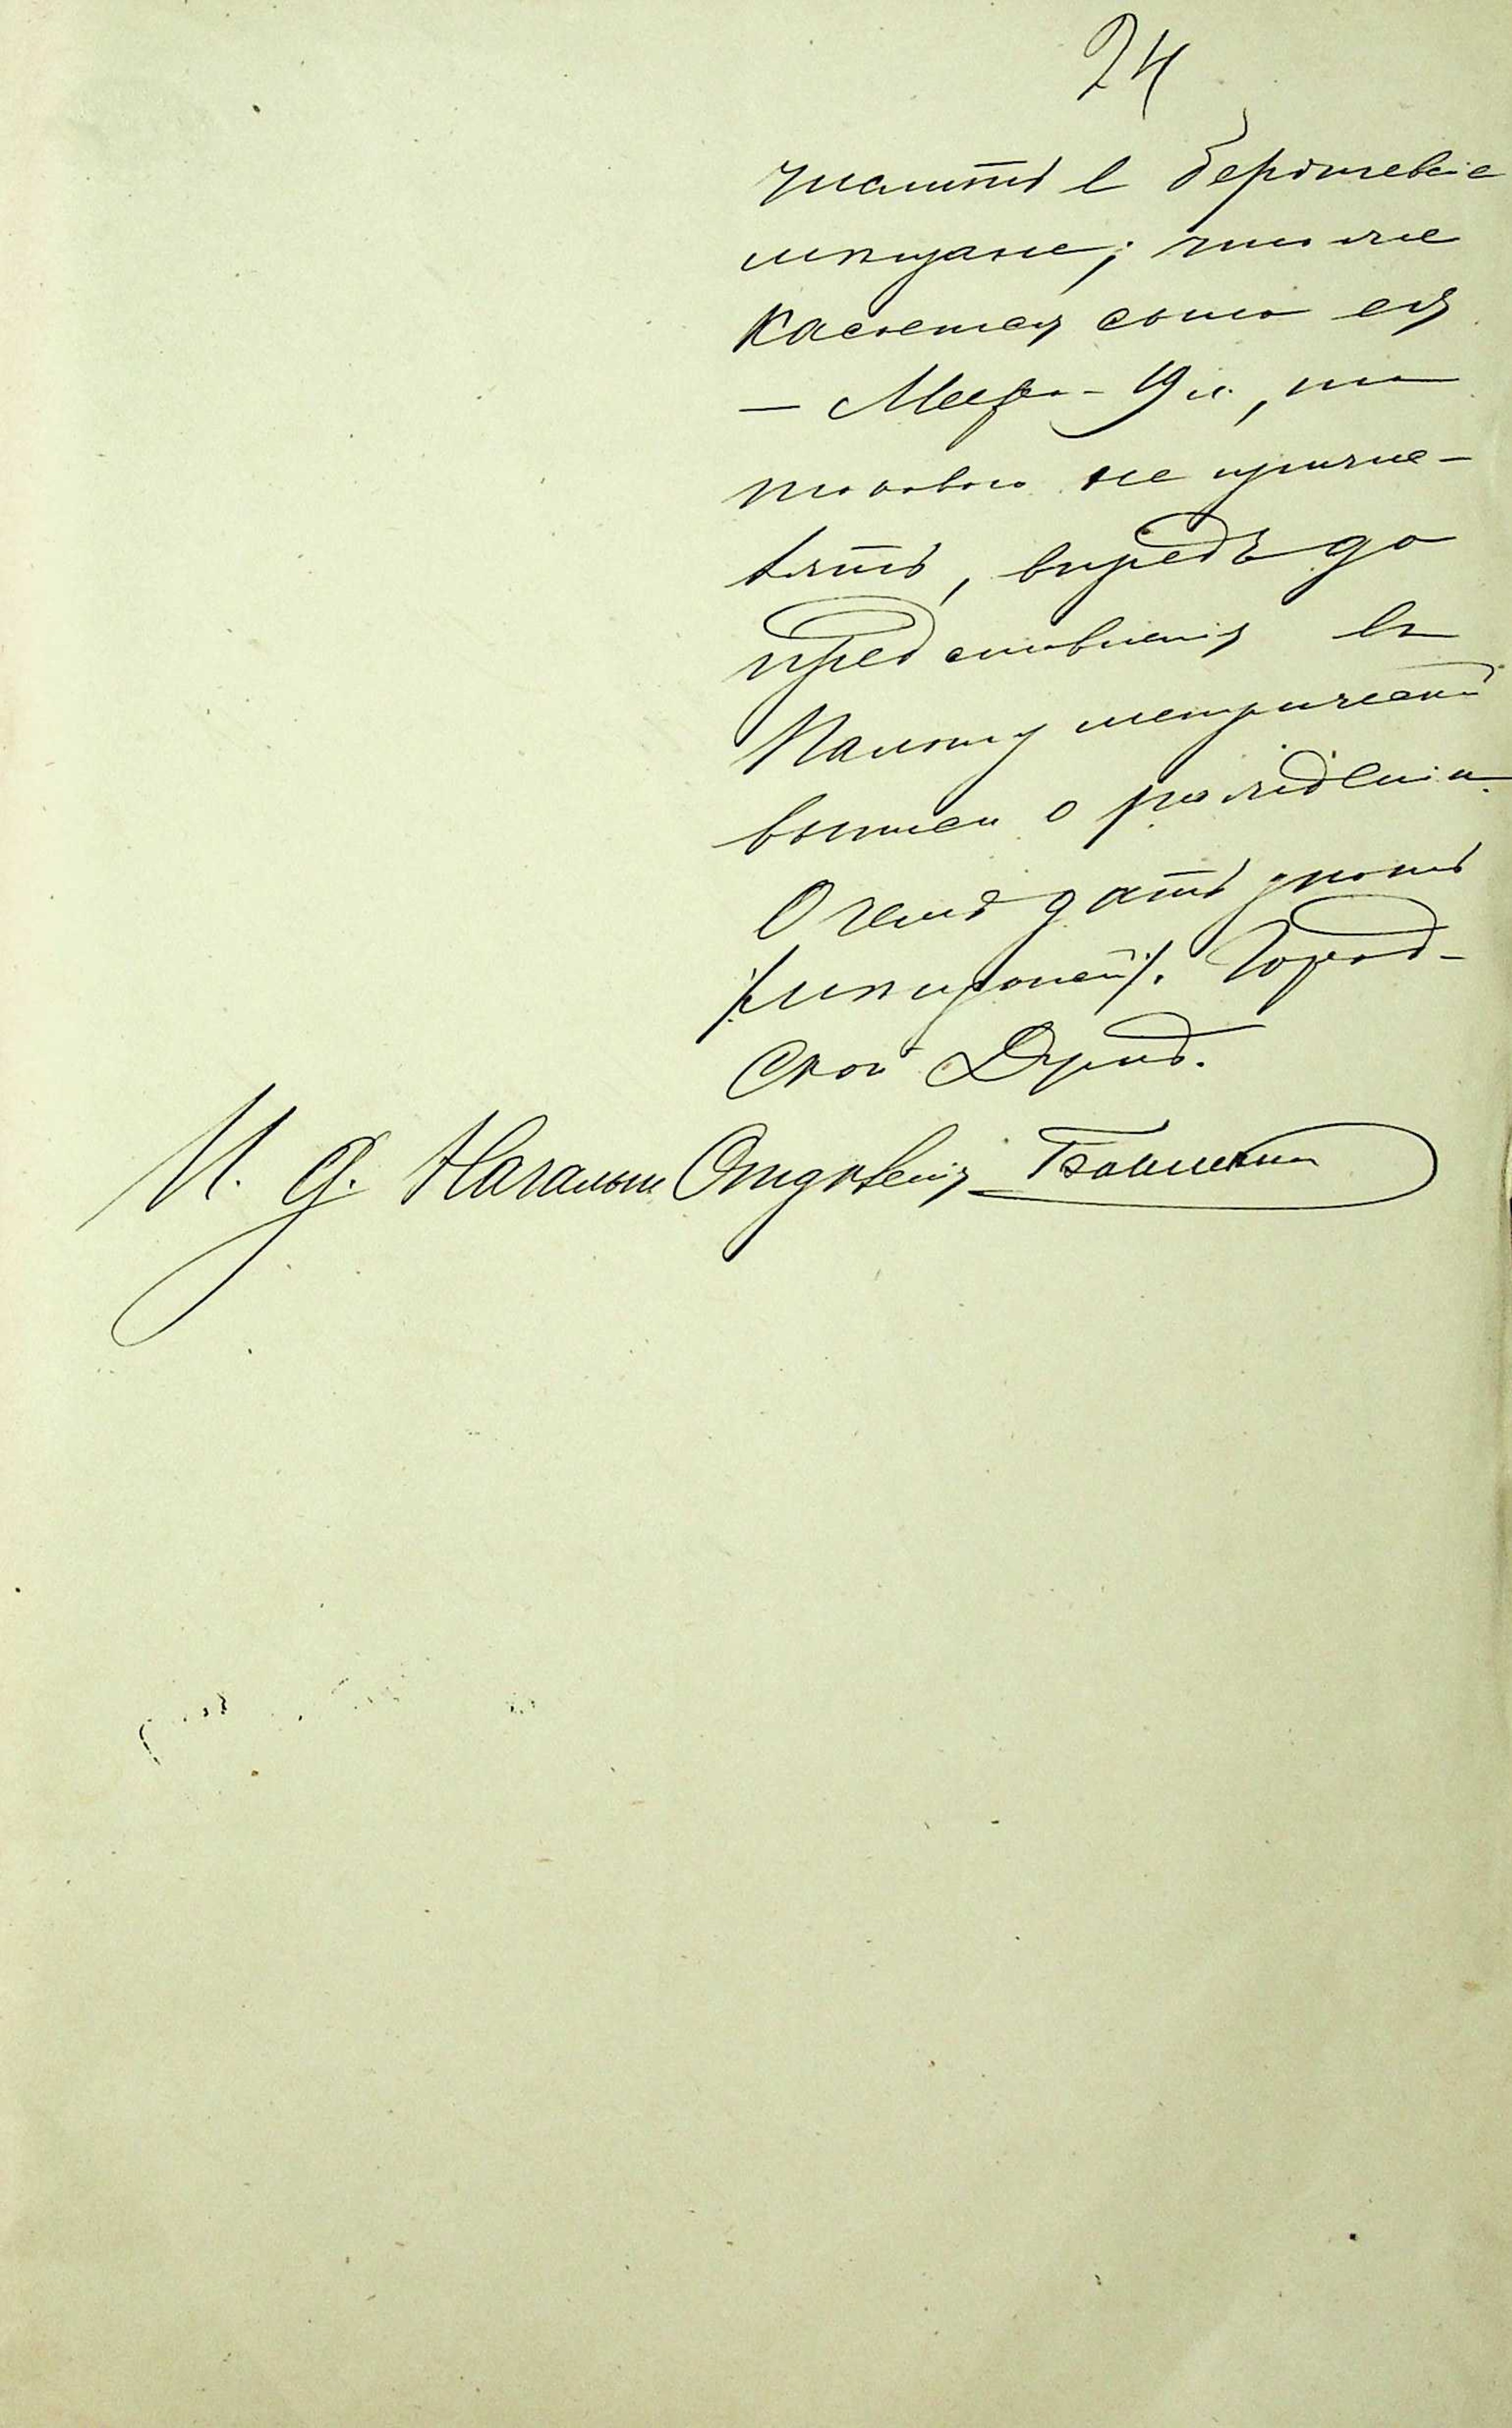 24
числить в Бердичевскіе
мѣщане; что же
касается сына ея
— Меера - 19 л., то
токового не причис-
лять, впредь до
представленія въ
Палату метрической
выписи о рожденіи.
О чемъ дать знать
/мѣщанск/. Город-
ской Думѣ.
И. д. Начальн. Отдѣленія